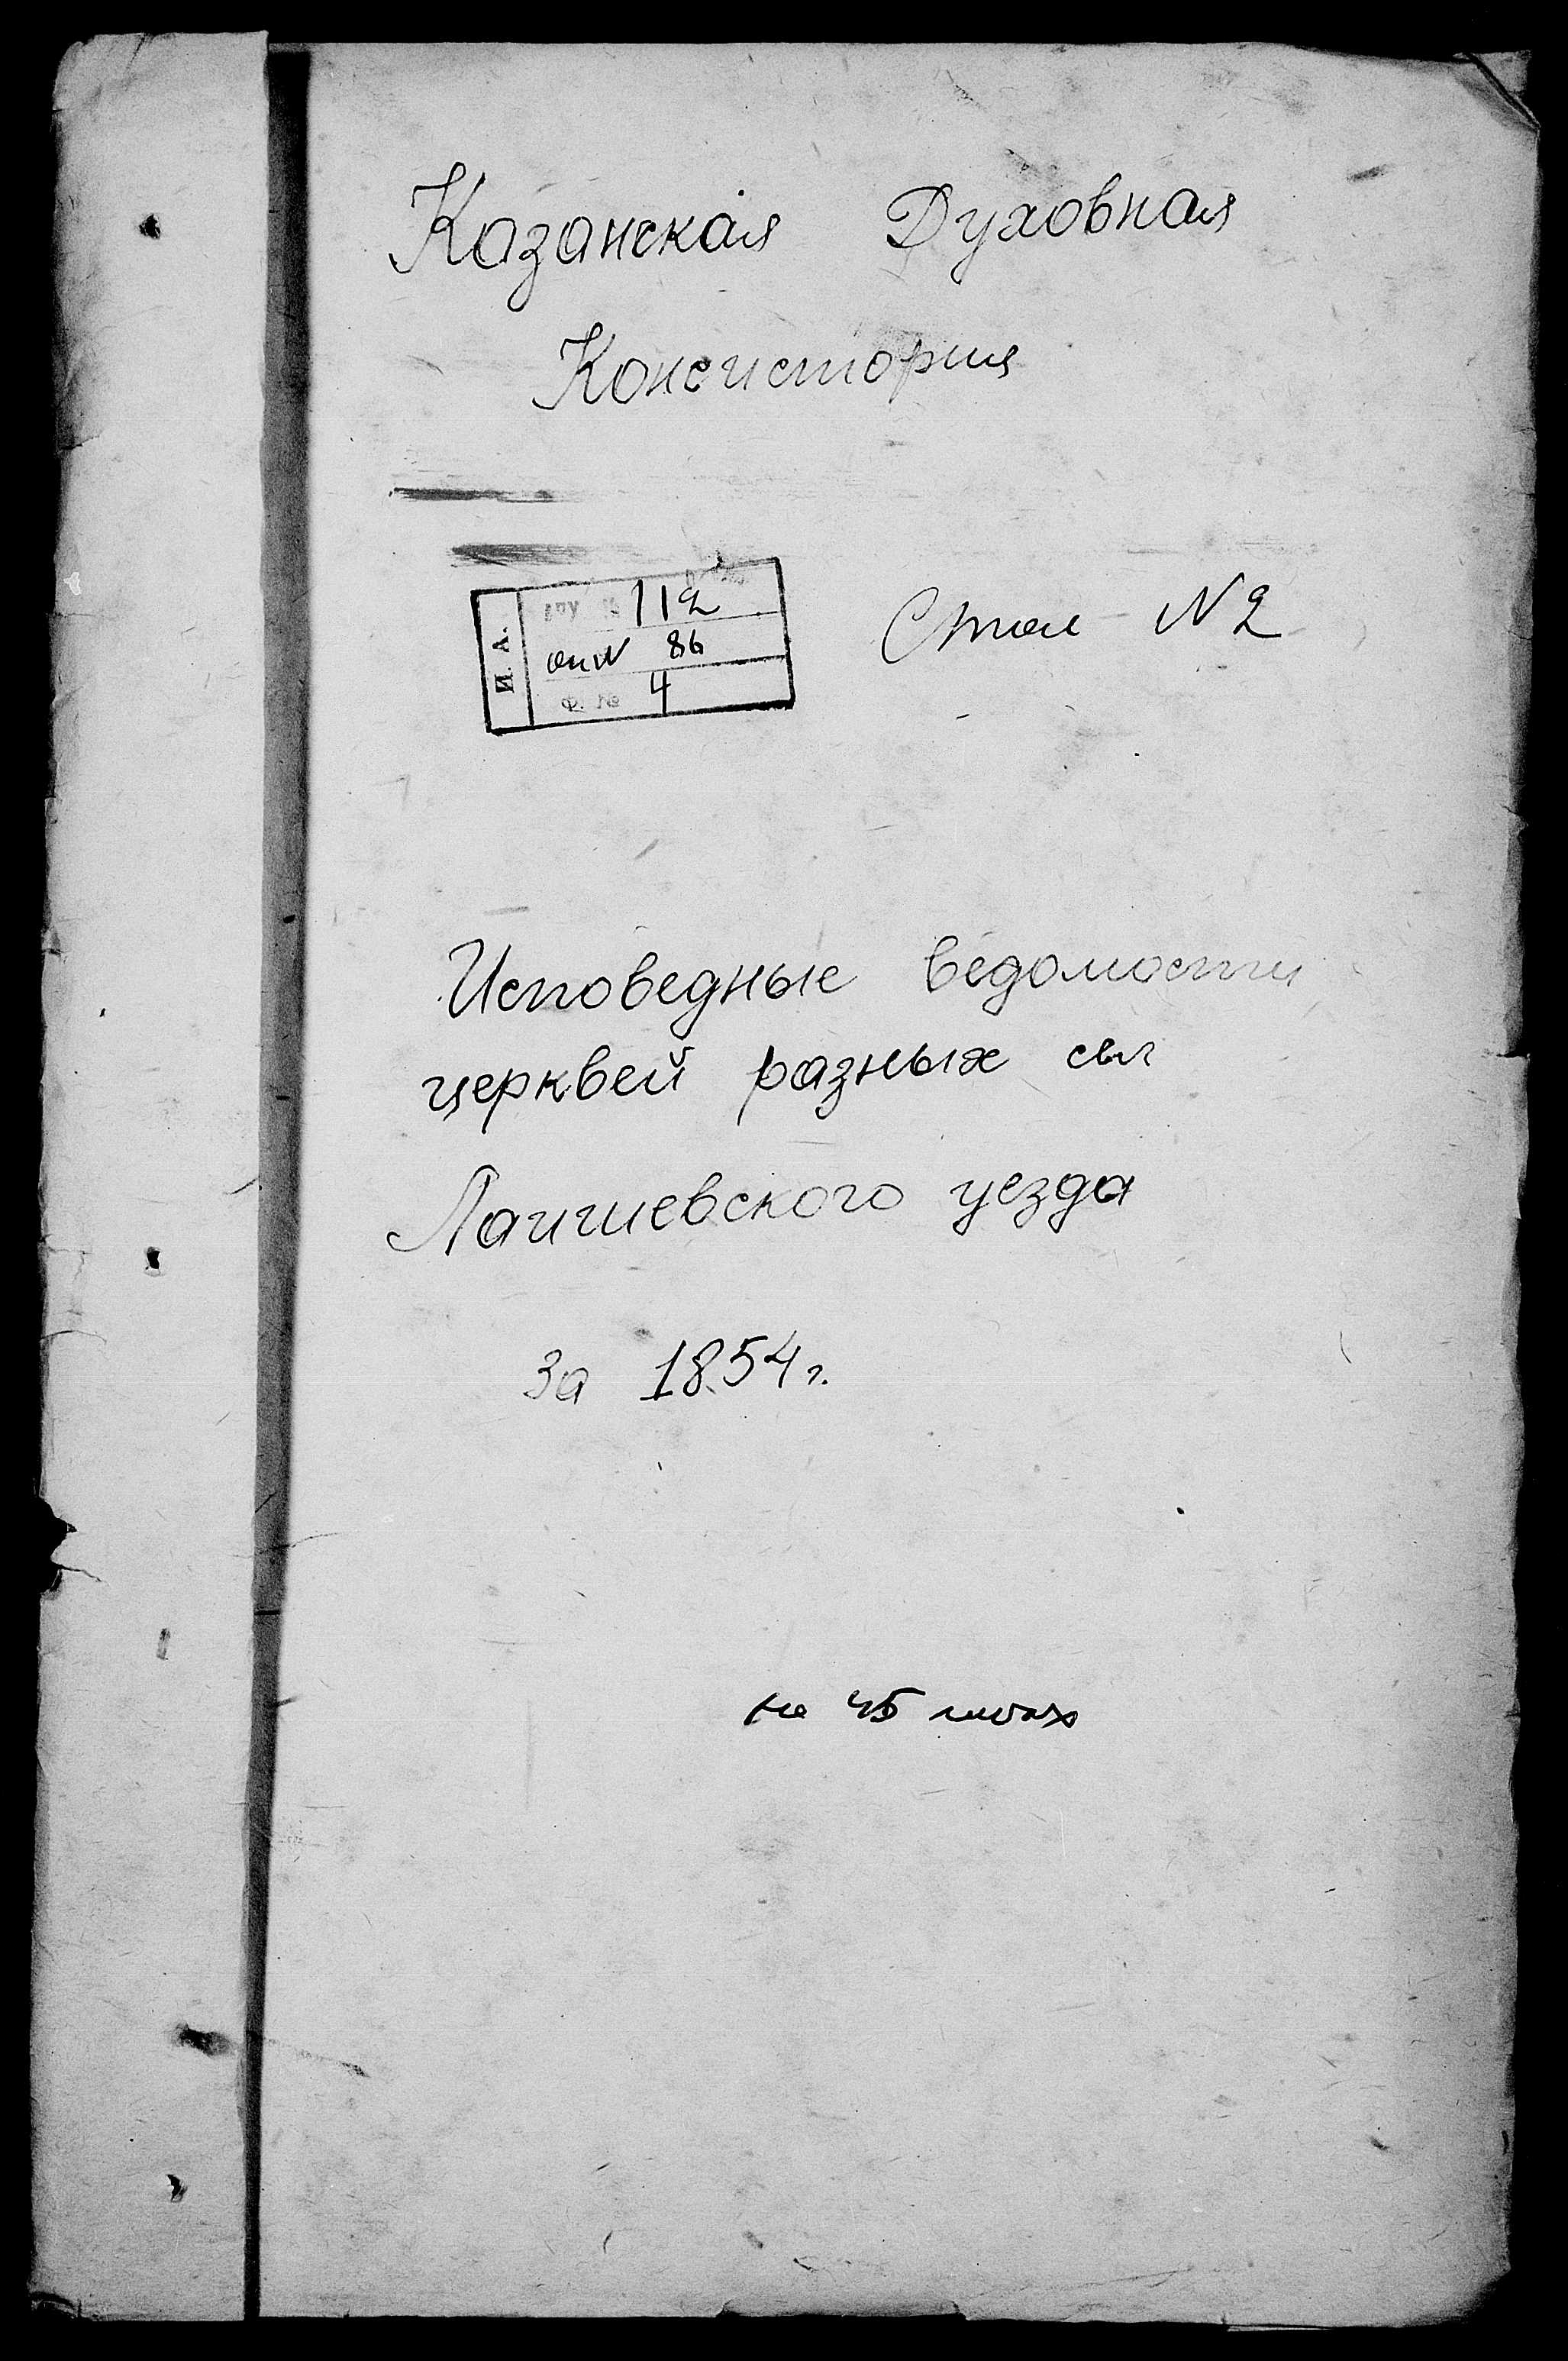 Казанская Духовная
Консистория
И. А.
112
оп N 86
Ф. № 4
Стол N 2
Исповедные ведомости
церквей разных сел
Лаишевского уезда
за 1854 г.
на 45 листах